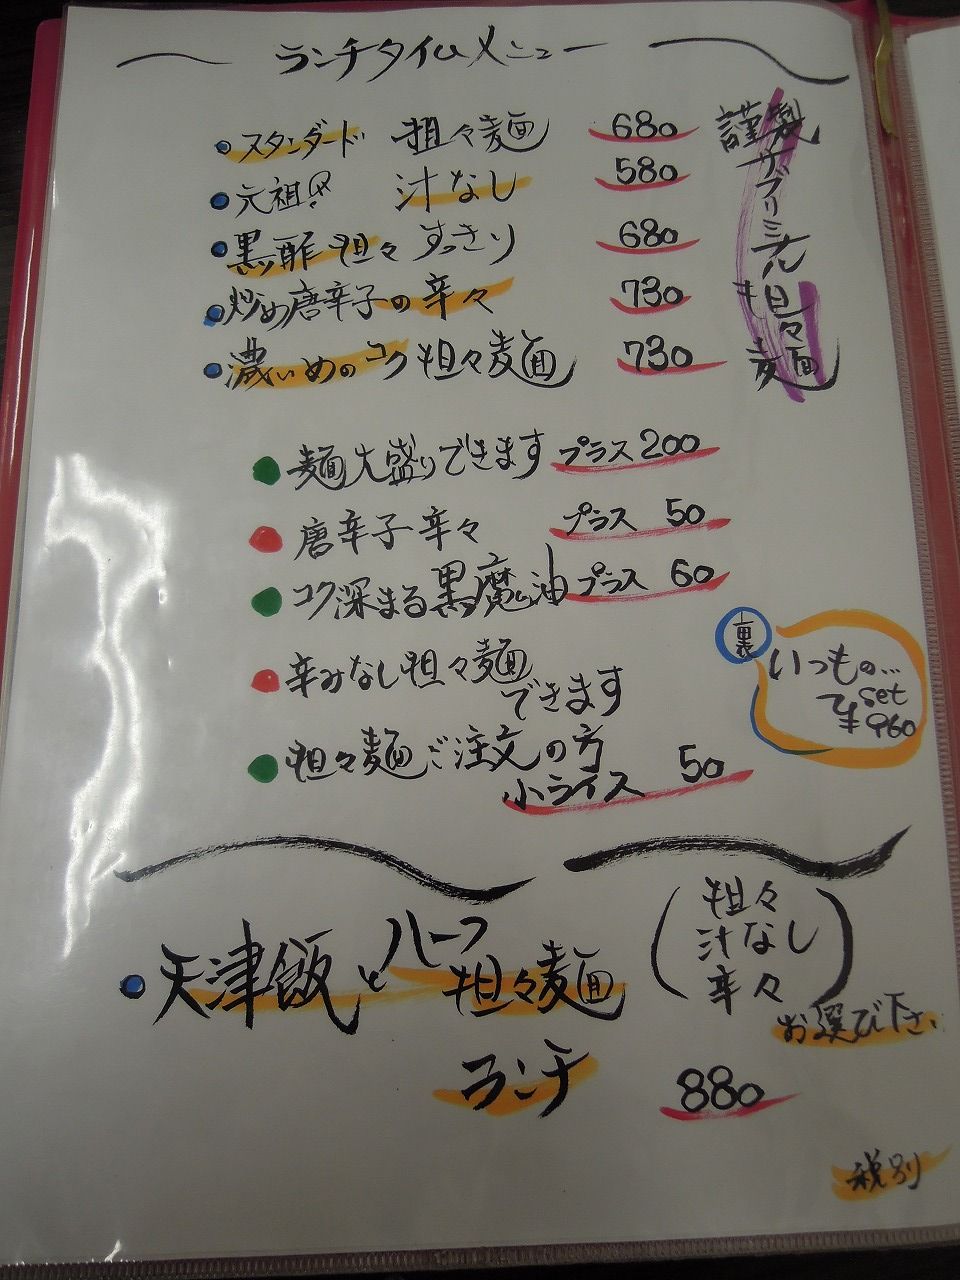 ランチタイムメニュー
スタンダード 担々麺 680
元祖 汁なし 580
黒酢担々 すっきり 680
炒め唐辛子の辛々 730
濃いめのコク担々麺 730
謹製サブリミナル担々麺
麺大盛りできます プラス200
唐辛子辛々 プラス 50
コク深まる黒魔油 プラス 60
辛みなし担々麺
できます
担々麺ご注文の方
小ライス 50
裏
いつもの…
でset
¥960
天津飯とハーフ
担々麺
ランチ
(担々
汁なし
辛々)
お選び下さい
880
税別